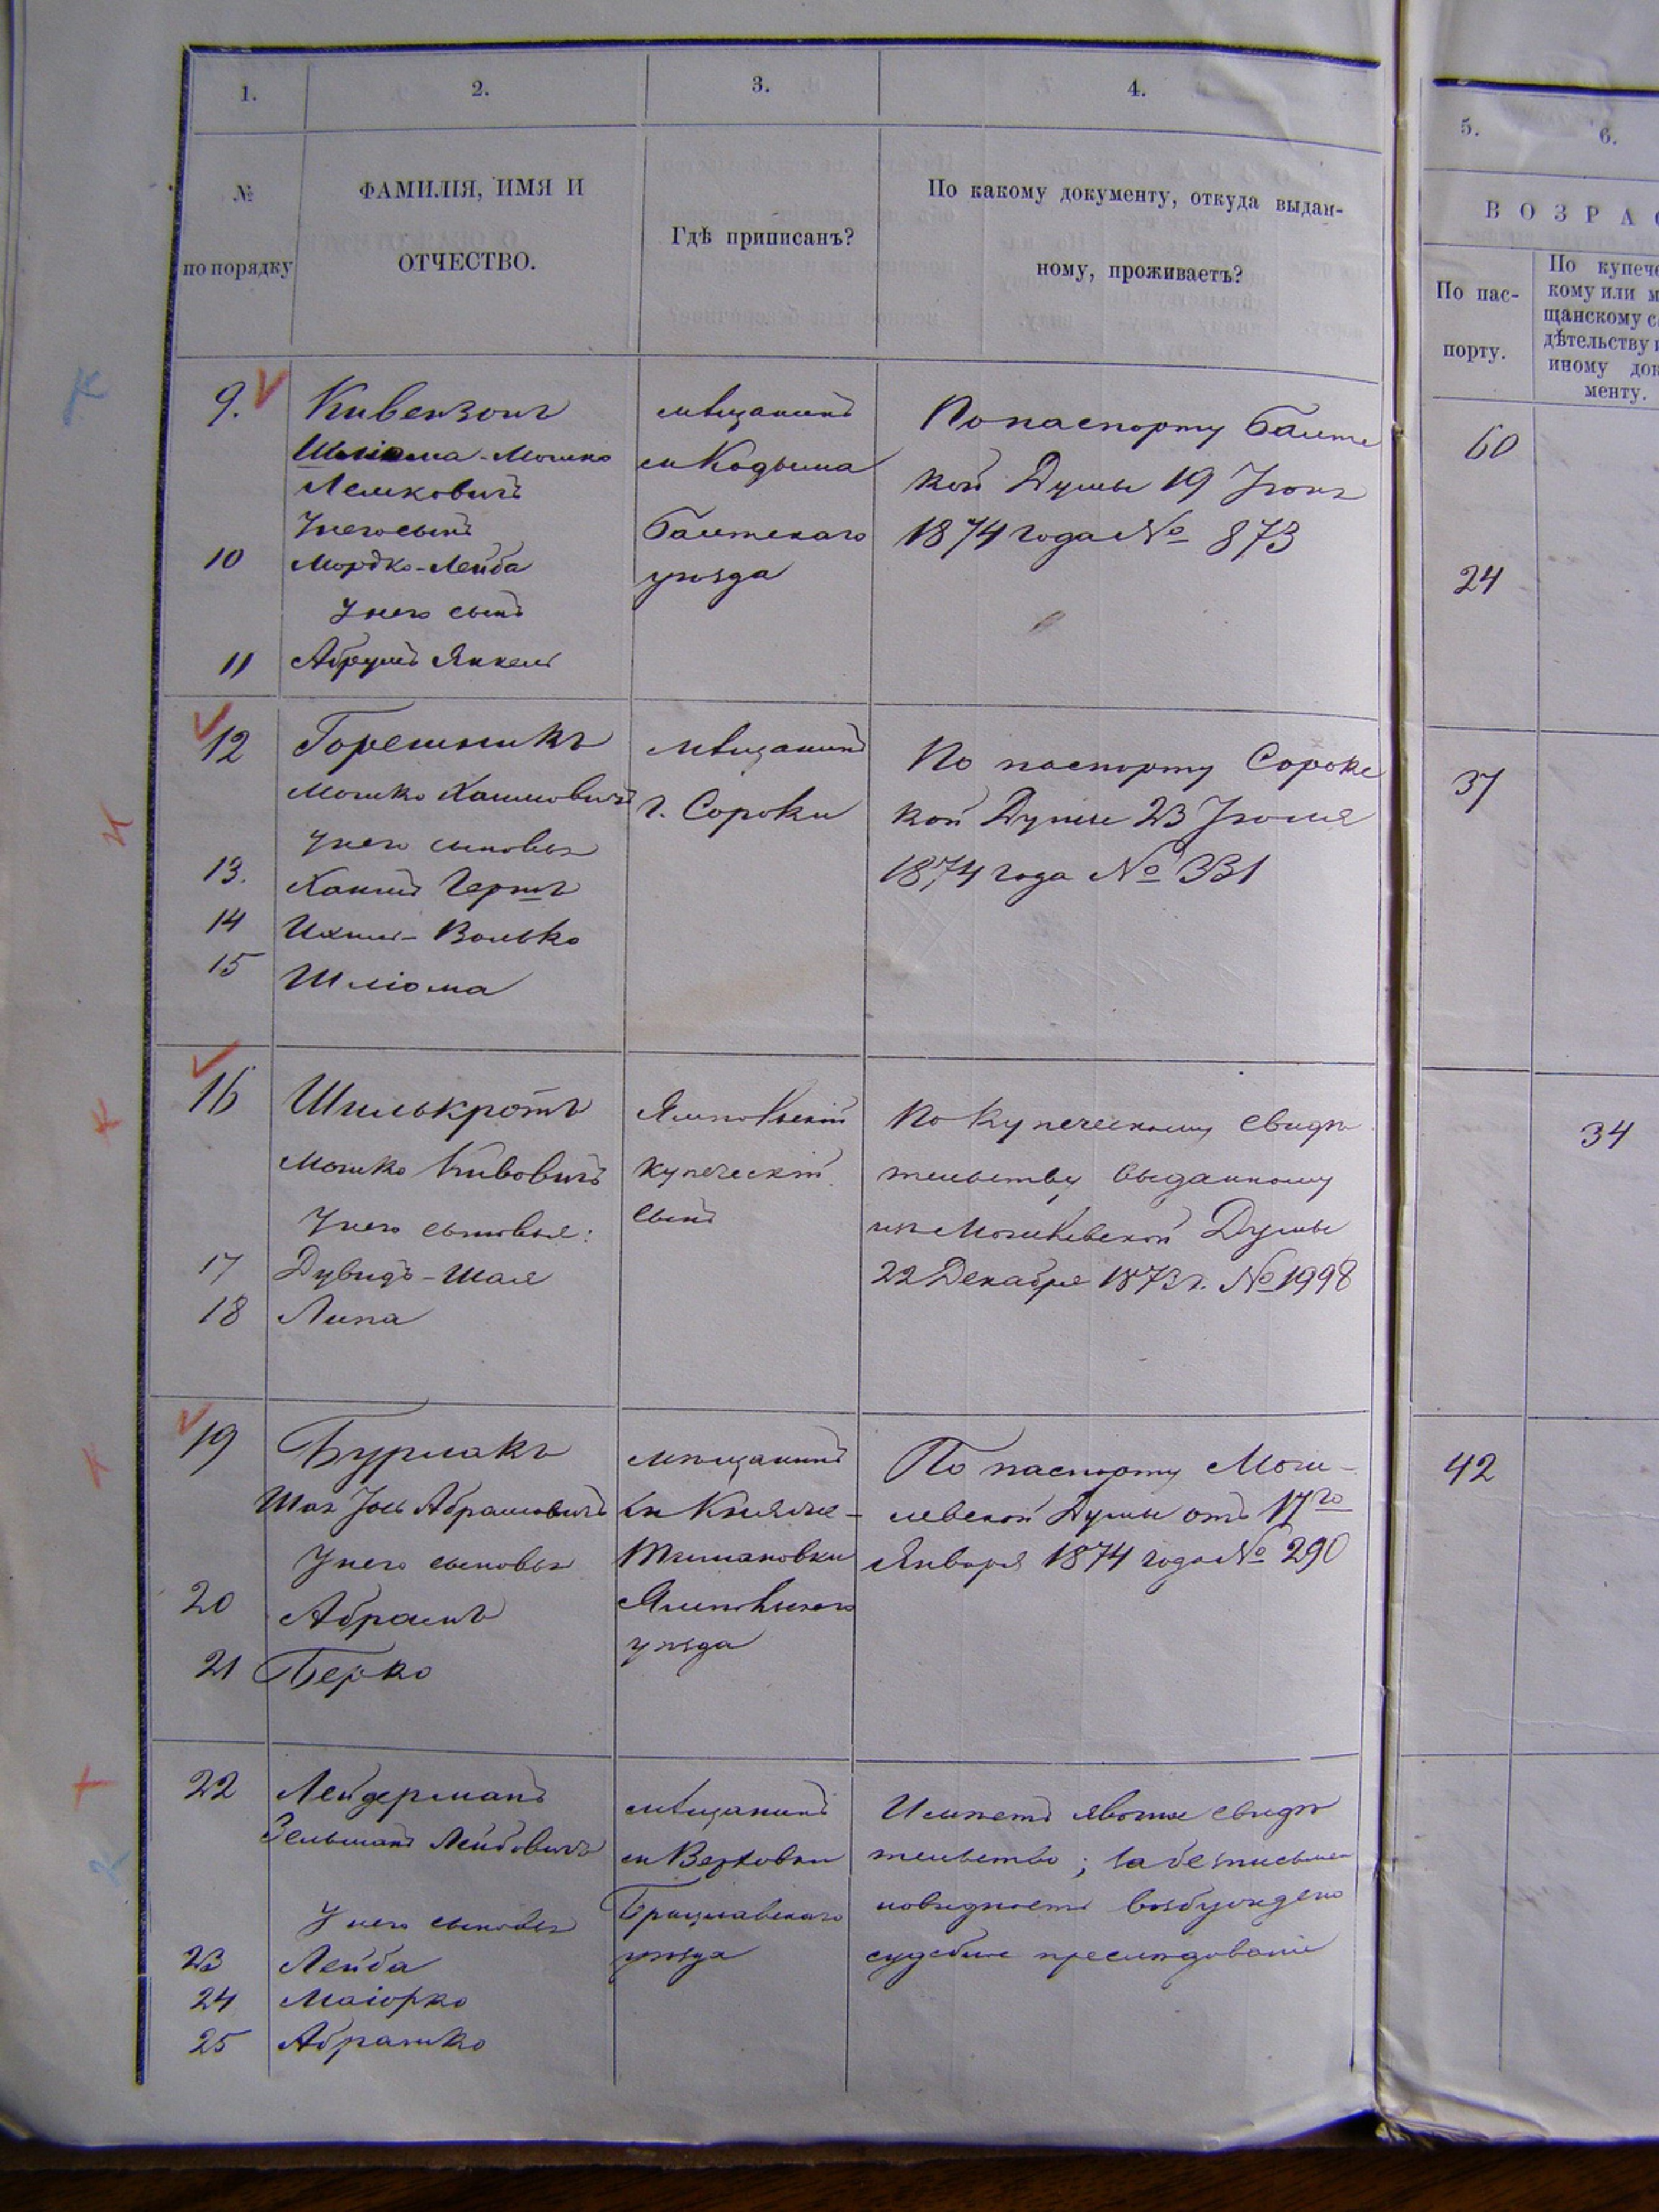 1.
2.
3.
4.
№
по порядку
ФАМИЛІЯ, ИМЯ И
ОТЧЕСТВО.
Гдѣ приписанъ?
По какому документу, откуда выдан-
ному, проживаетъ?
5.
6.
ВОЗРА
По пас-
порту.
По купече
кому или м
щанскому с
дѣтельству
иному док
менту.
9.
Кивензонъ
Шліома-Мошко
Лейковичъ
У него сынъ
10
Мордко-Лейба
У него сынъ
11
Абрумъ Янкель
мѣщанинъ
м Кодыма
Балтскаго
уѣзда
По паспорту Балтс
кой Думы 19 Іюня
1874 года № 873
60
24
12
Горешникъ
Мошко Хаимовичъ
у него сыновья
13.
Хаимъ Гершъ
14
Ихиль-Волько
15
Шліома
мѣщанинъ
г. Сороки
По паспорту Сорокс
кой Думы 23 Іюля
1874 года № 331
37
16
Шилькротъ
Мошко Кивовичъ
У него сыновья:
17
Дувидъ-Шая
18
Липа
Ямпольскій
купеческій
сынъ
По купеческому свидѣ
тельству выданному
изъ Могилевской Думы
22 Декабря 1873 г. № 1998
34
19
Бурлакъ
Абрамовичъ
У него сыновья
20
Абрамъ
21
Берко
мѣщанинъ
м Княже-
Тимановки
Ямпольскаго
уѣзда
По паспорту Моги-
левской Думы отъ 17го
Января 1874 года № 290
42
22
Лейдерманъ
Зельманъ Лейбовичъ
У него сыновья
23
Лейба
24
Маіорко
25
Абрамко
мѣщанинъ
м Верховки
Брацлавскаго
уѣзда
Имѣетъ явочное свидѣ
тельство; за безписьме
новидность возбуждено
судебное преслѣдованіе